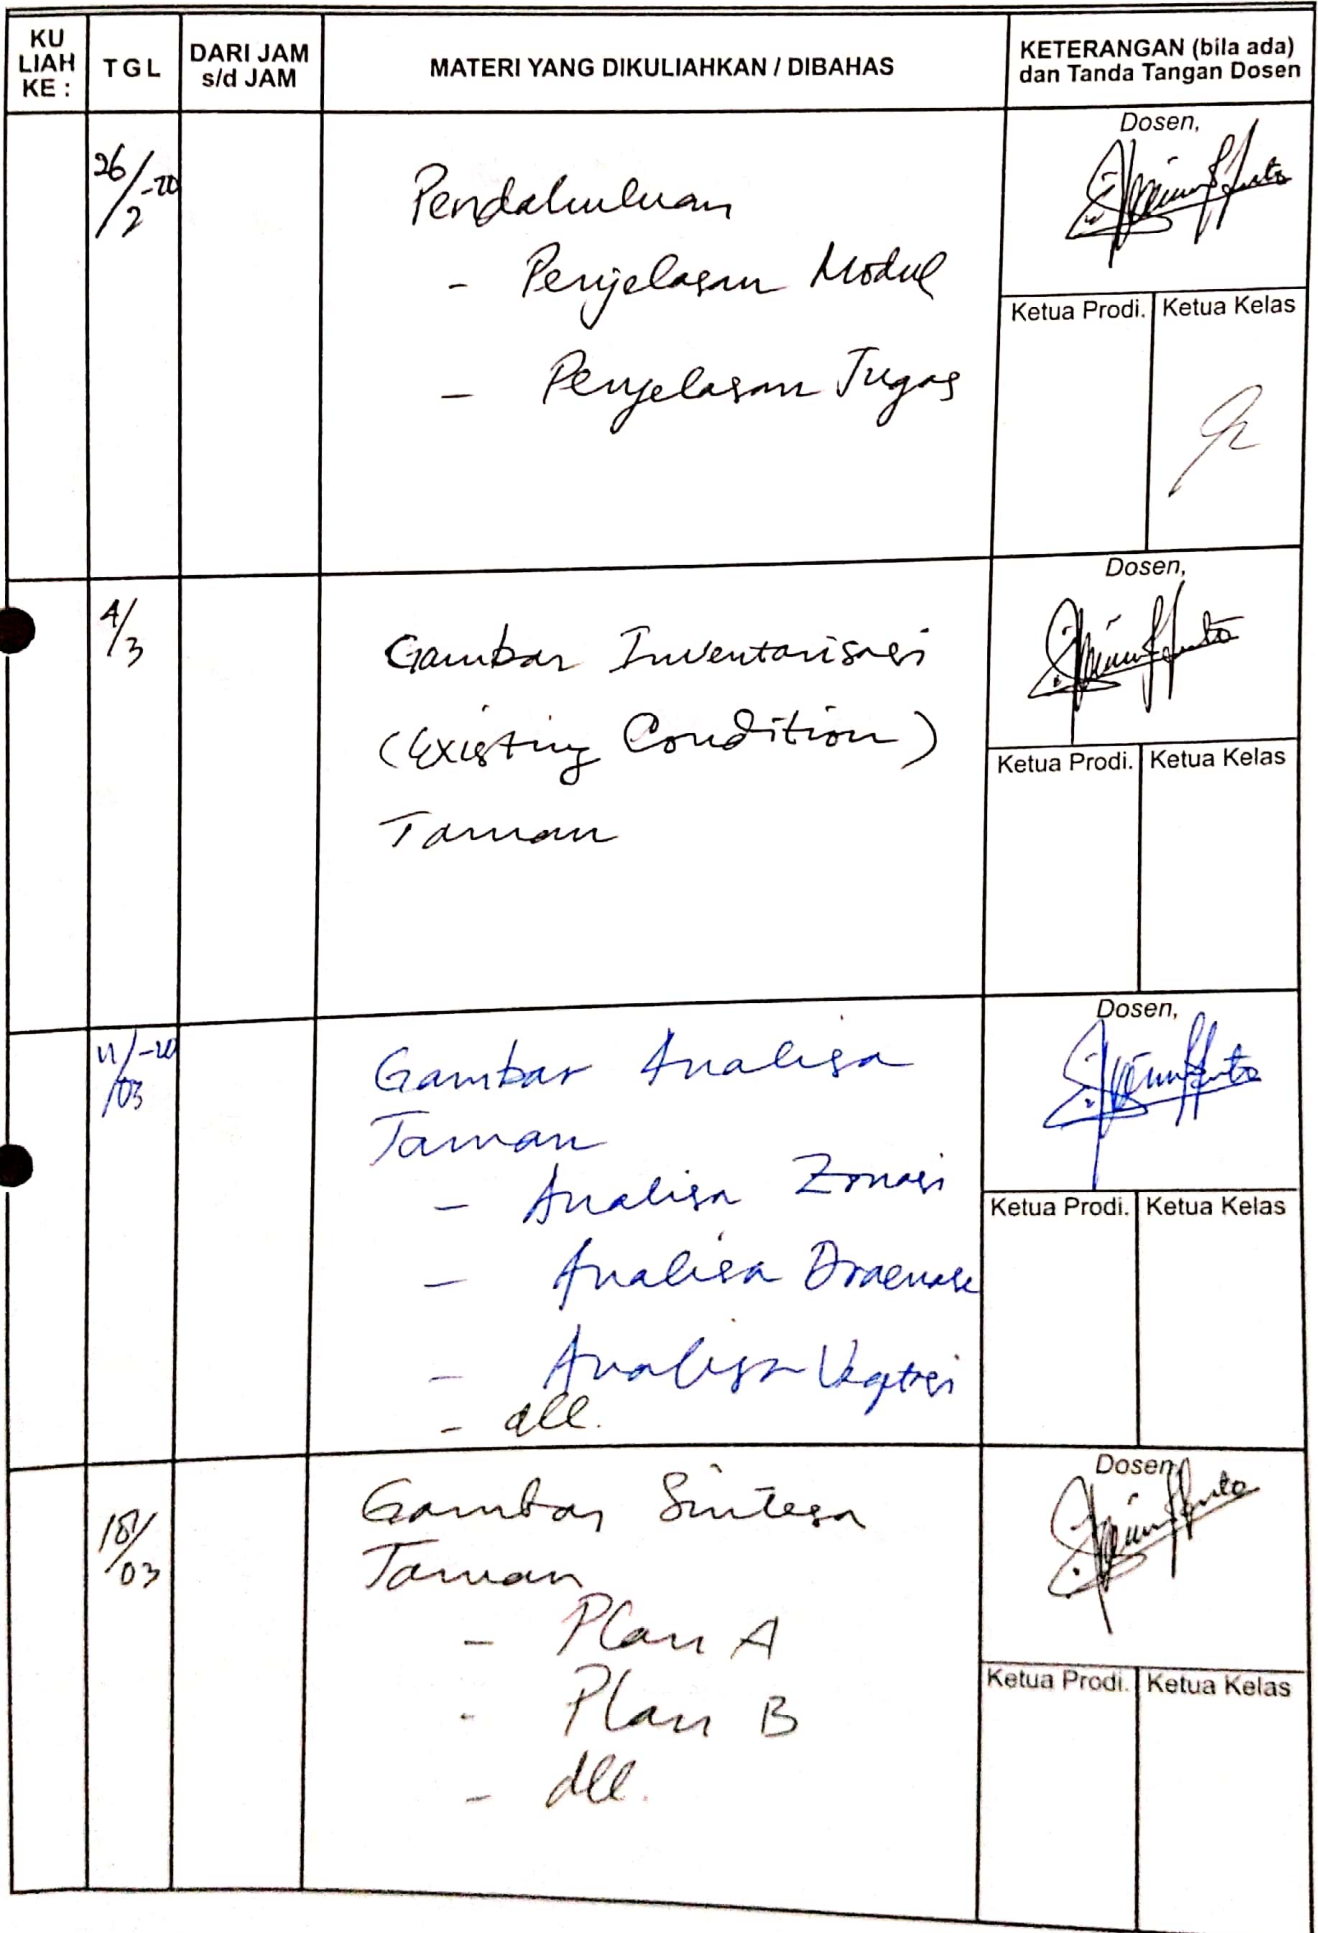 KU LIAH KE :
TGL
DARI JAM s/d JAM
MATERI YANG DIKULIAHKAN / DIBAHAS
KETERANGAN (bila ada) dan Tanda Tangan Dosen
26/2-20
Pendahuluan
- Penjelasan Modul
- Penjelasan Tugas
Dosen,
Ketua Prodi. Ketua Kelas
4/3
Gambar Inventarisasi
(Existing Condition)
Taman
Dosen,
Ketua Prodi. Ketua Kelas
11/03-20
Gambar Analisa
Taman
- Analisa Zonasi
- Analisa Draenase
- Analisa Vegtasi
- dll.
Dosen,
Ketua Prodi. Ketua Kelas
18/03
Gambar Sintesa
Taman
- Plan A
- Plan B
- dll.
Dosen,
Ketua Prodi. Ketua Kelas